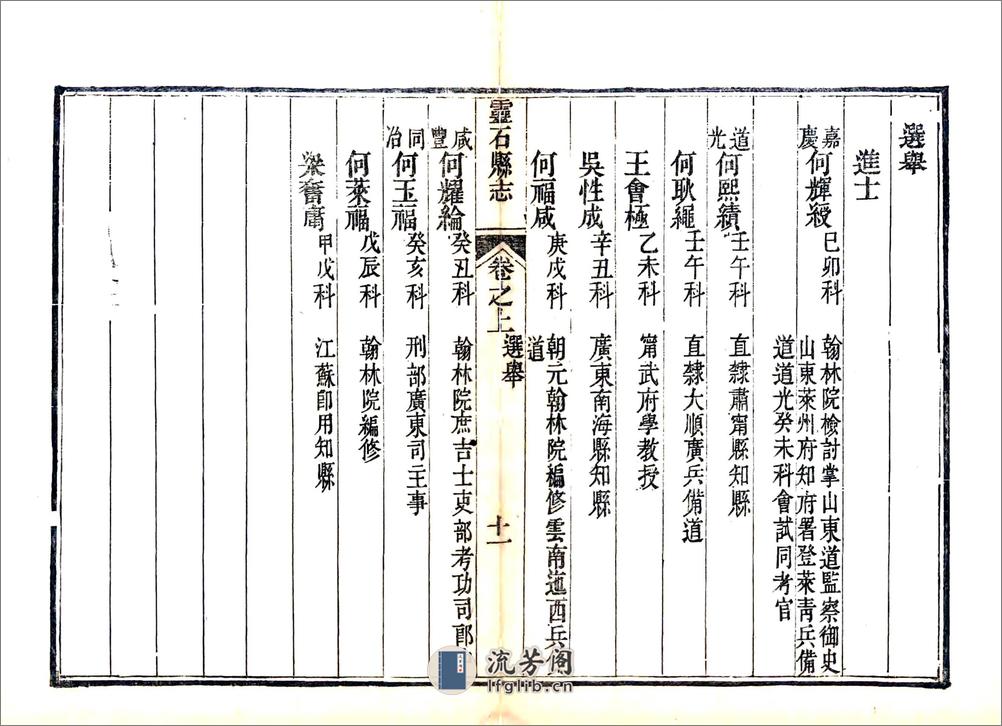 選舉
進士
嘉慶何輝綬 已卯科 翰林院檢討掌山東道監察御史
山東萊州府知府署登萊青兵備
道道光癸未科會試同考官
道光何熙績 壬午科 直隸肅甯縣知縣
何耿繩 壬午科 直隸大順廣兵備道
王會極 乙未科 甯武府學教授
吳性成 辛丑科 廣東南海縣知縣
何福咸 庚戌科 朝元翰林院編修雲南迤西兵備
道
靈石縣志 卷之上 選舉 十一
咸豐何耀綸 癸丑科 翰林院庶吉士吏部考功司郎
同治何玉福 癸亥科 刑部廣東司主事
何萊福 戊辰科 翰林院編修
梁奮庸 甲戌科 江蘇即用知縣
流芳阁
lfglib.cn